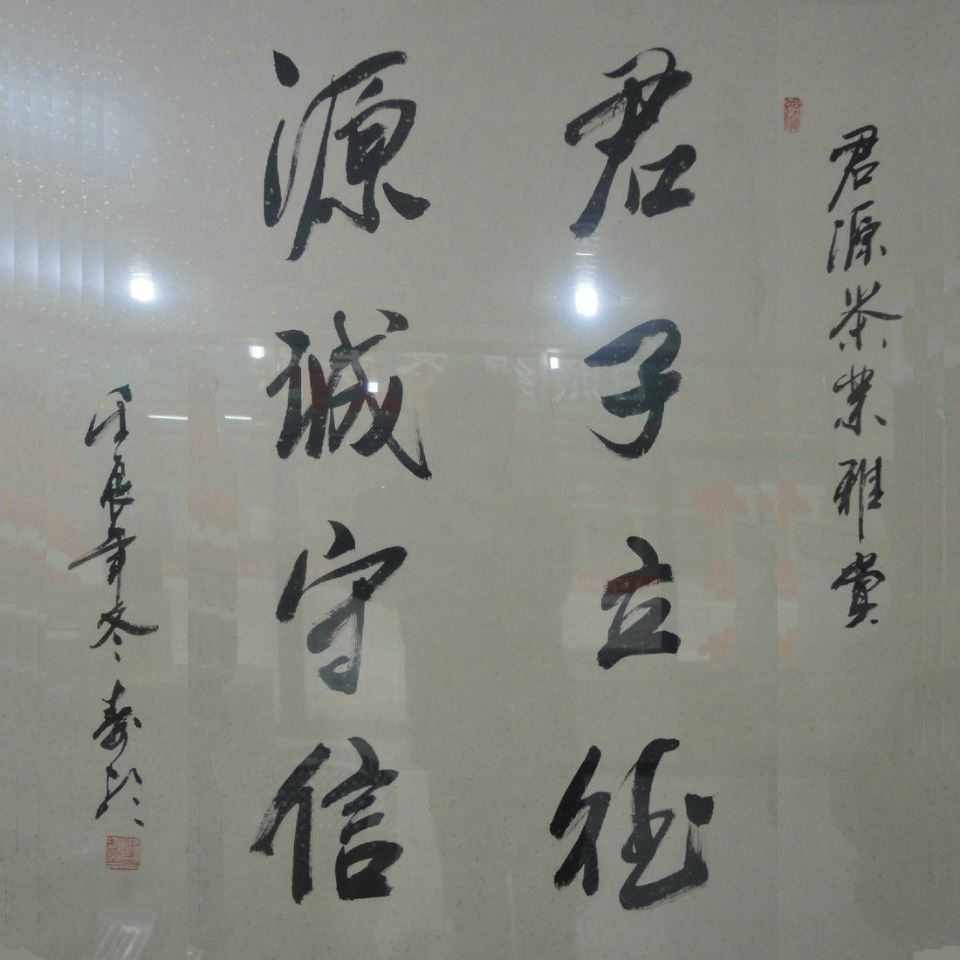 君源茶業雅賞
君子立德
源誠守信
壬辰年冬壽